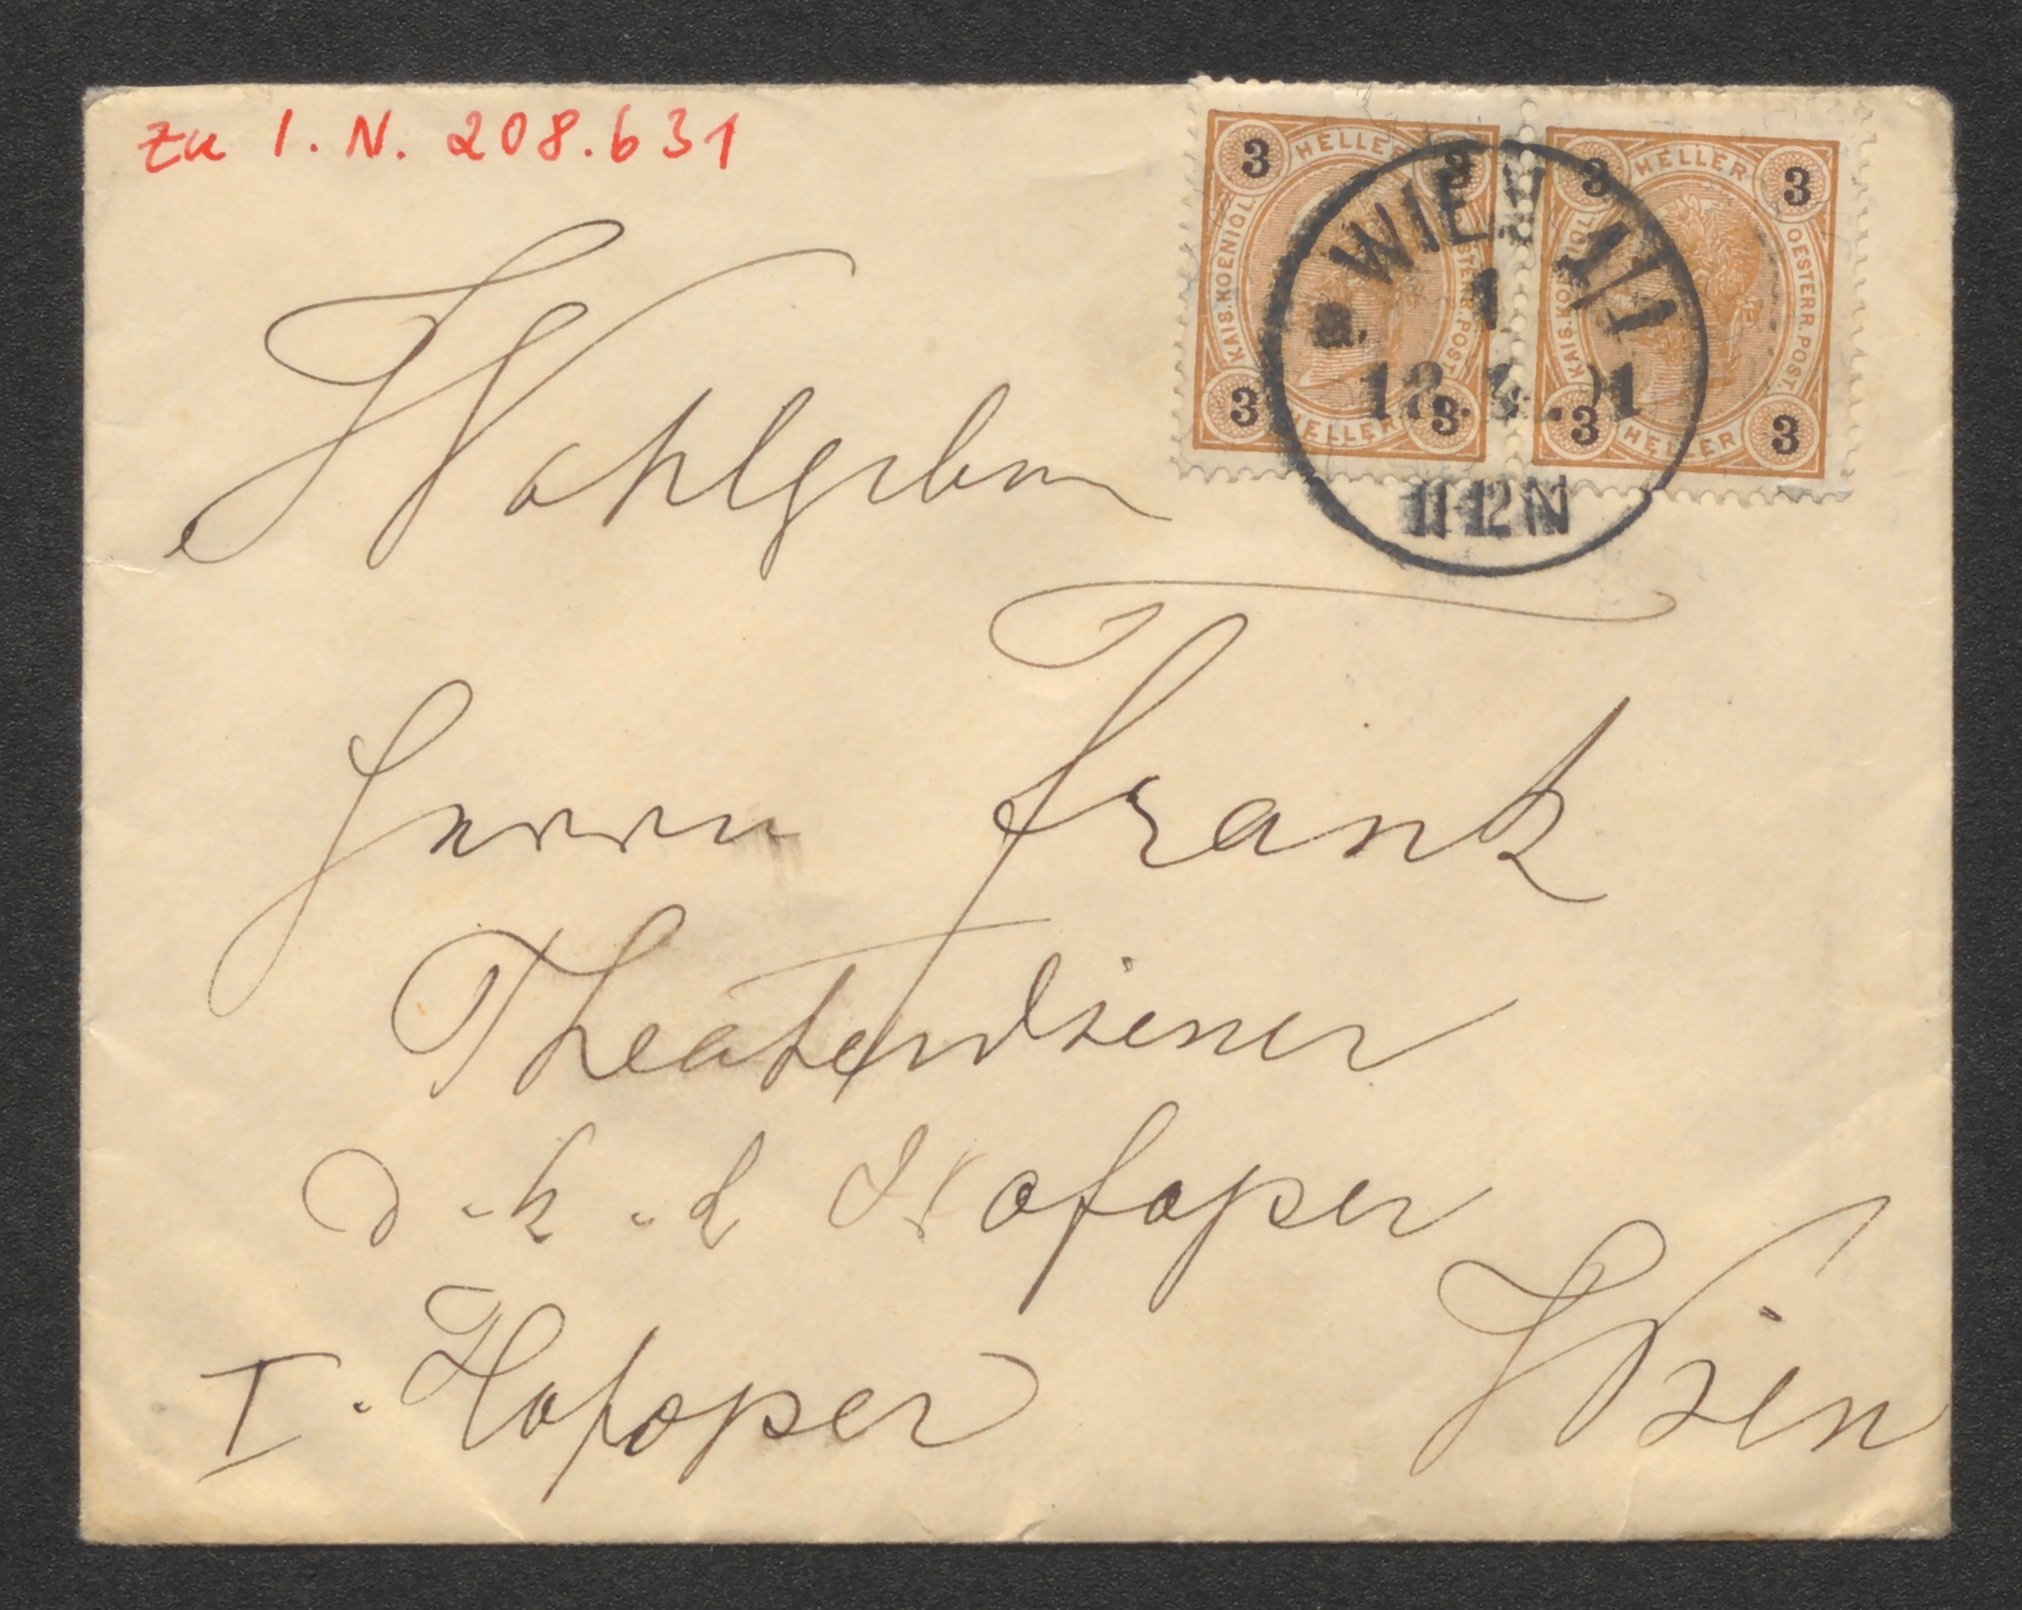 zu I. N. 208.631
3 HELLER 3
3 HELLER 3
KAIS. KOENIGL. OESTERR. POST.
KAIS. KOENIGL. OESTERR. POST.
3 HELLER 3
3 HELLER 3
WIEN
1
a.
11-12 N
Wohlgeborn
Herrn Frank
Theaterdiener
d. k. k. Hofoper
I. Hofoper Wien